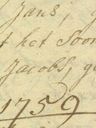 Jans,
t het Soon
Jacobs, g
1759